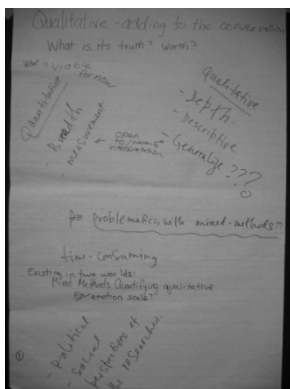 Qualitative - adding to the conversation
What is its truth? Worth?
What is viable for now
Quantitative
- Breadth
- measurement
open
interpretation
Qualitative
- Depth
- Descriptive
- Generalize ???
problematics with mixed-methods??
time-consuming
Existing in two worlds:
Mixed Methods Quantifying qualitative
Ex-emotion scale?
- Political
- social
perspectives of
the researcher